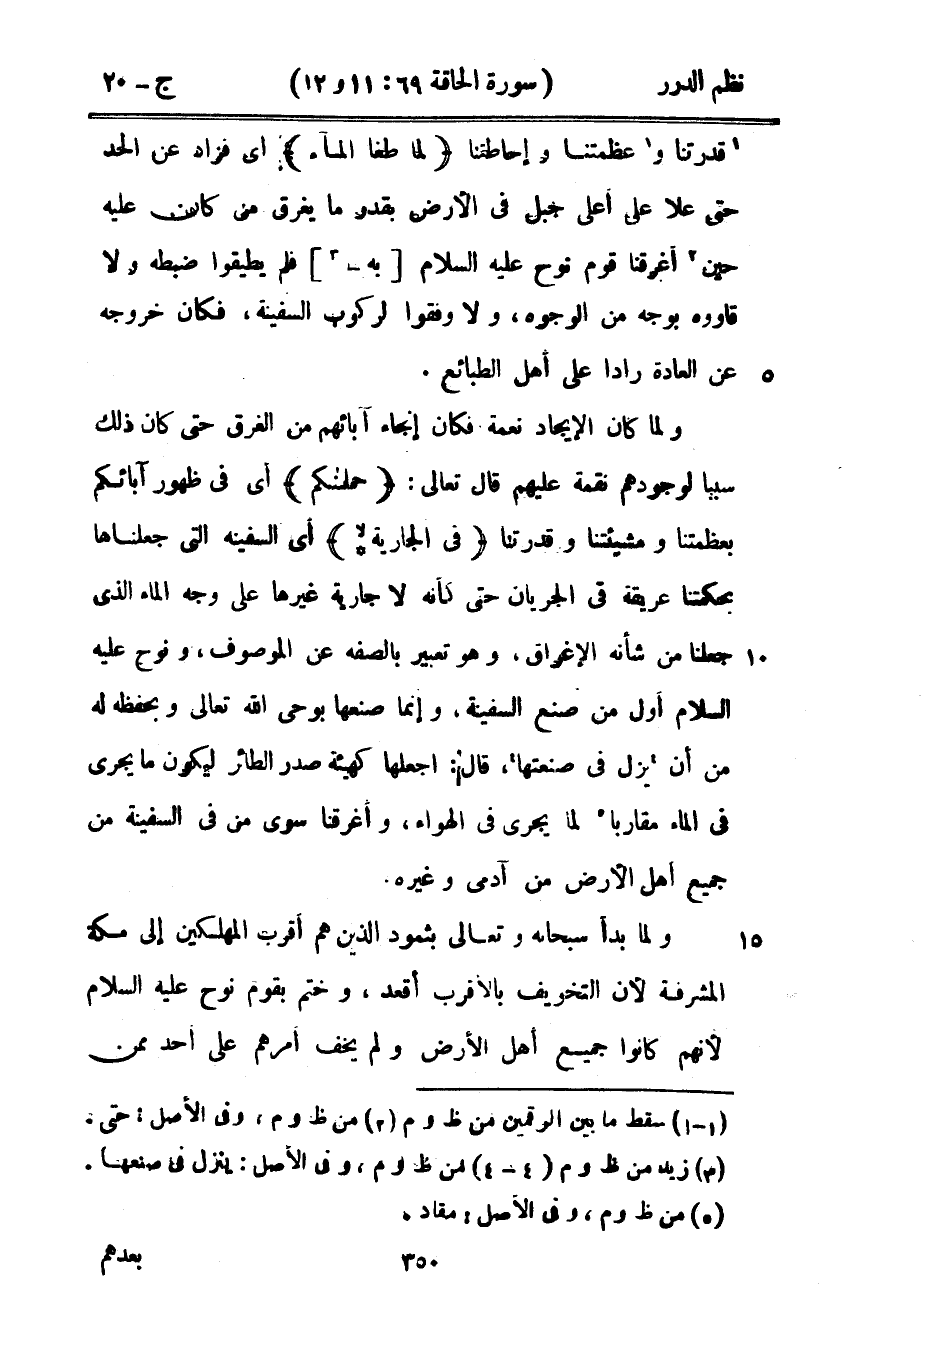 نظم الدرر (سورة الحاقة ٦٩: ١١ و ١٢) ج - ٢٠
١قدرتنا و١ عظمتنا و إحاطتنا ﴿ لما طغا المآء ﴾ أى فزاد عن الحد
حتى علا على أعلى جبل فى الأرض بقدر ما يغرق من كان عليه
حين٢ أغرقنا قوم نوح عليه السلام [ به - ٣ ] فلم يطيقوا ضبطه و لا
قاووه بوجه من الوجوه، و لا وفقوا لركوب السفينة، فكان خروجه
٥ عن العادة رادا على أهل الطبائع .
و لما كان الإيجاد نعمة فكان إنجاء آبائهم من الغرق حتى كان ذلك
سببا لوجودهم نقمة عليهم قال تعالى: ﴿ حملنٰكم ﴾ أى فى ظهور آبائكم
بعظمتنا و مشيئتنا و قدرتنا ﴿ فى الجارية ﴾ أى السفينه التى جعلناها
بحكمتنا عريقة فى الجريان حتى كأنه لا جارية غيرها على وجه الماء الذى
١٠ جعلنا من شأنه الإغراق، و هو تعبير بالصفه عن الموصوف، و نوح عليه
السلام أول من صنع السفينة، و إنما صنعها بوحى الله تعالى و بحفظه له
من أن ٤يزل فى صنعتها٤، قال: اجعلها كهيئة صدر الطائر ليكون ما يجرى
فى الماء مقاربا٥ لما يجرى فى الهواء، و أغرقنا سوى من فى السفينة من
جميع أهل الأرض من آدمى و غيره.
١٥ و لما بدأ سبحانه و تعالى بثمود الذين هم أقرب المهلكين إلى مكة
المشرفة لأن التخويف بالأقرب أقعد، و ختم بقوم نوح عليه السلام
لأنهم كانوا جميع أهل الأرض و لم يخف أمرهم على أحد ممن
(١-١) سقط ما بين الرقمين من ظ و م (٢) من ظ و م، وفى الأصل: حتى .
(٣) زيد من ظ و م (٤ - ٤) من ظ و م، و فى الأصل: ينزل فى صنعها .
(٥) من ظ و م، و فى الأصل: مقاد .
٣٥٠ بعدهم